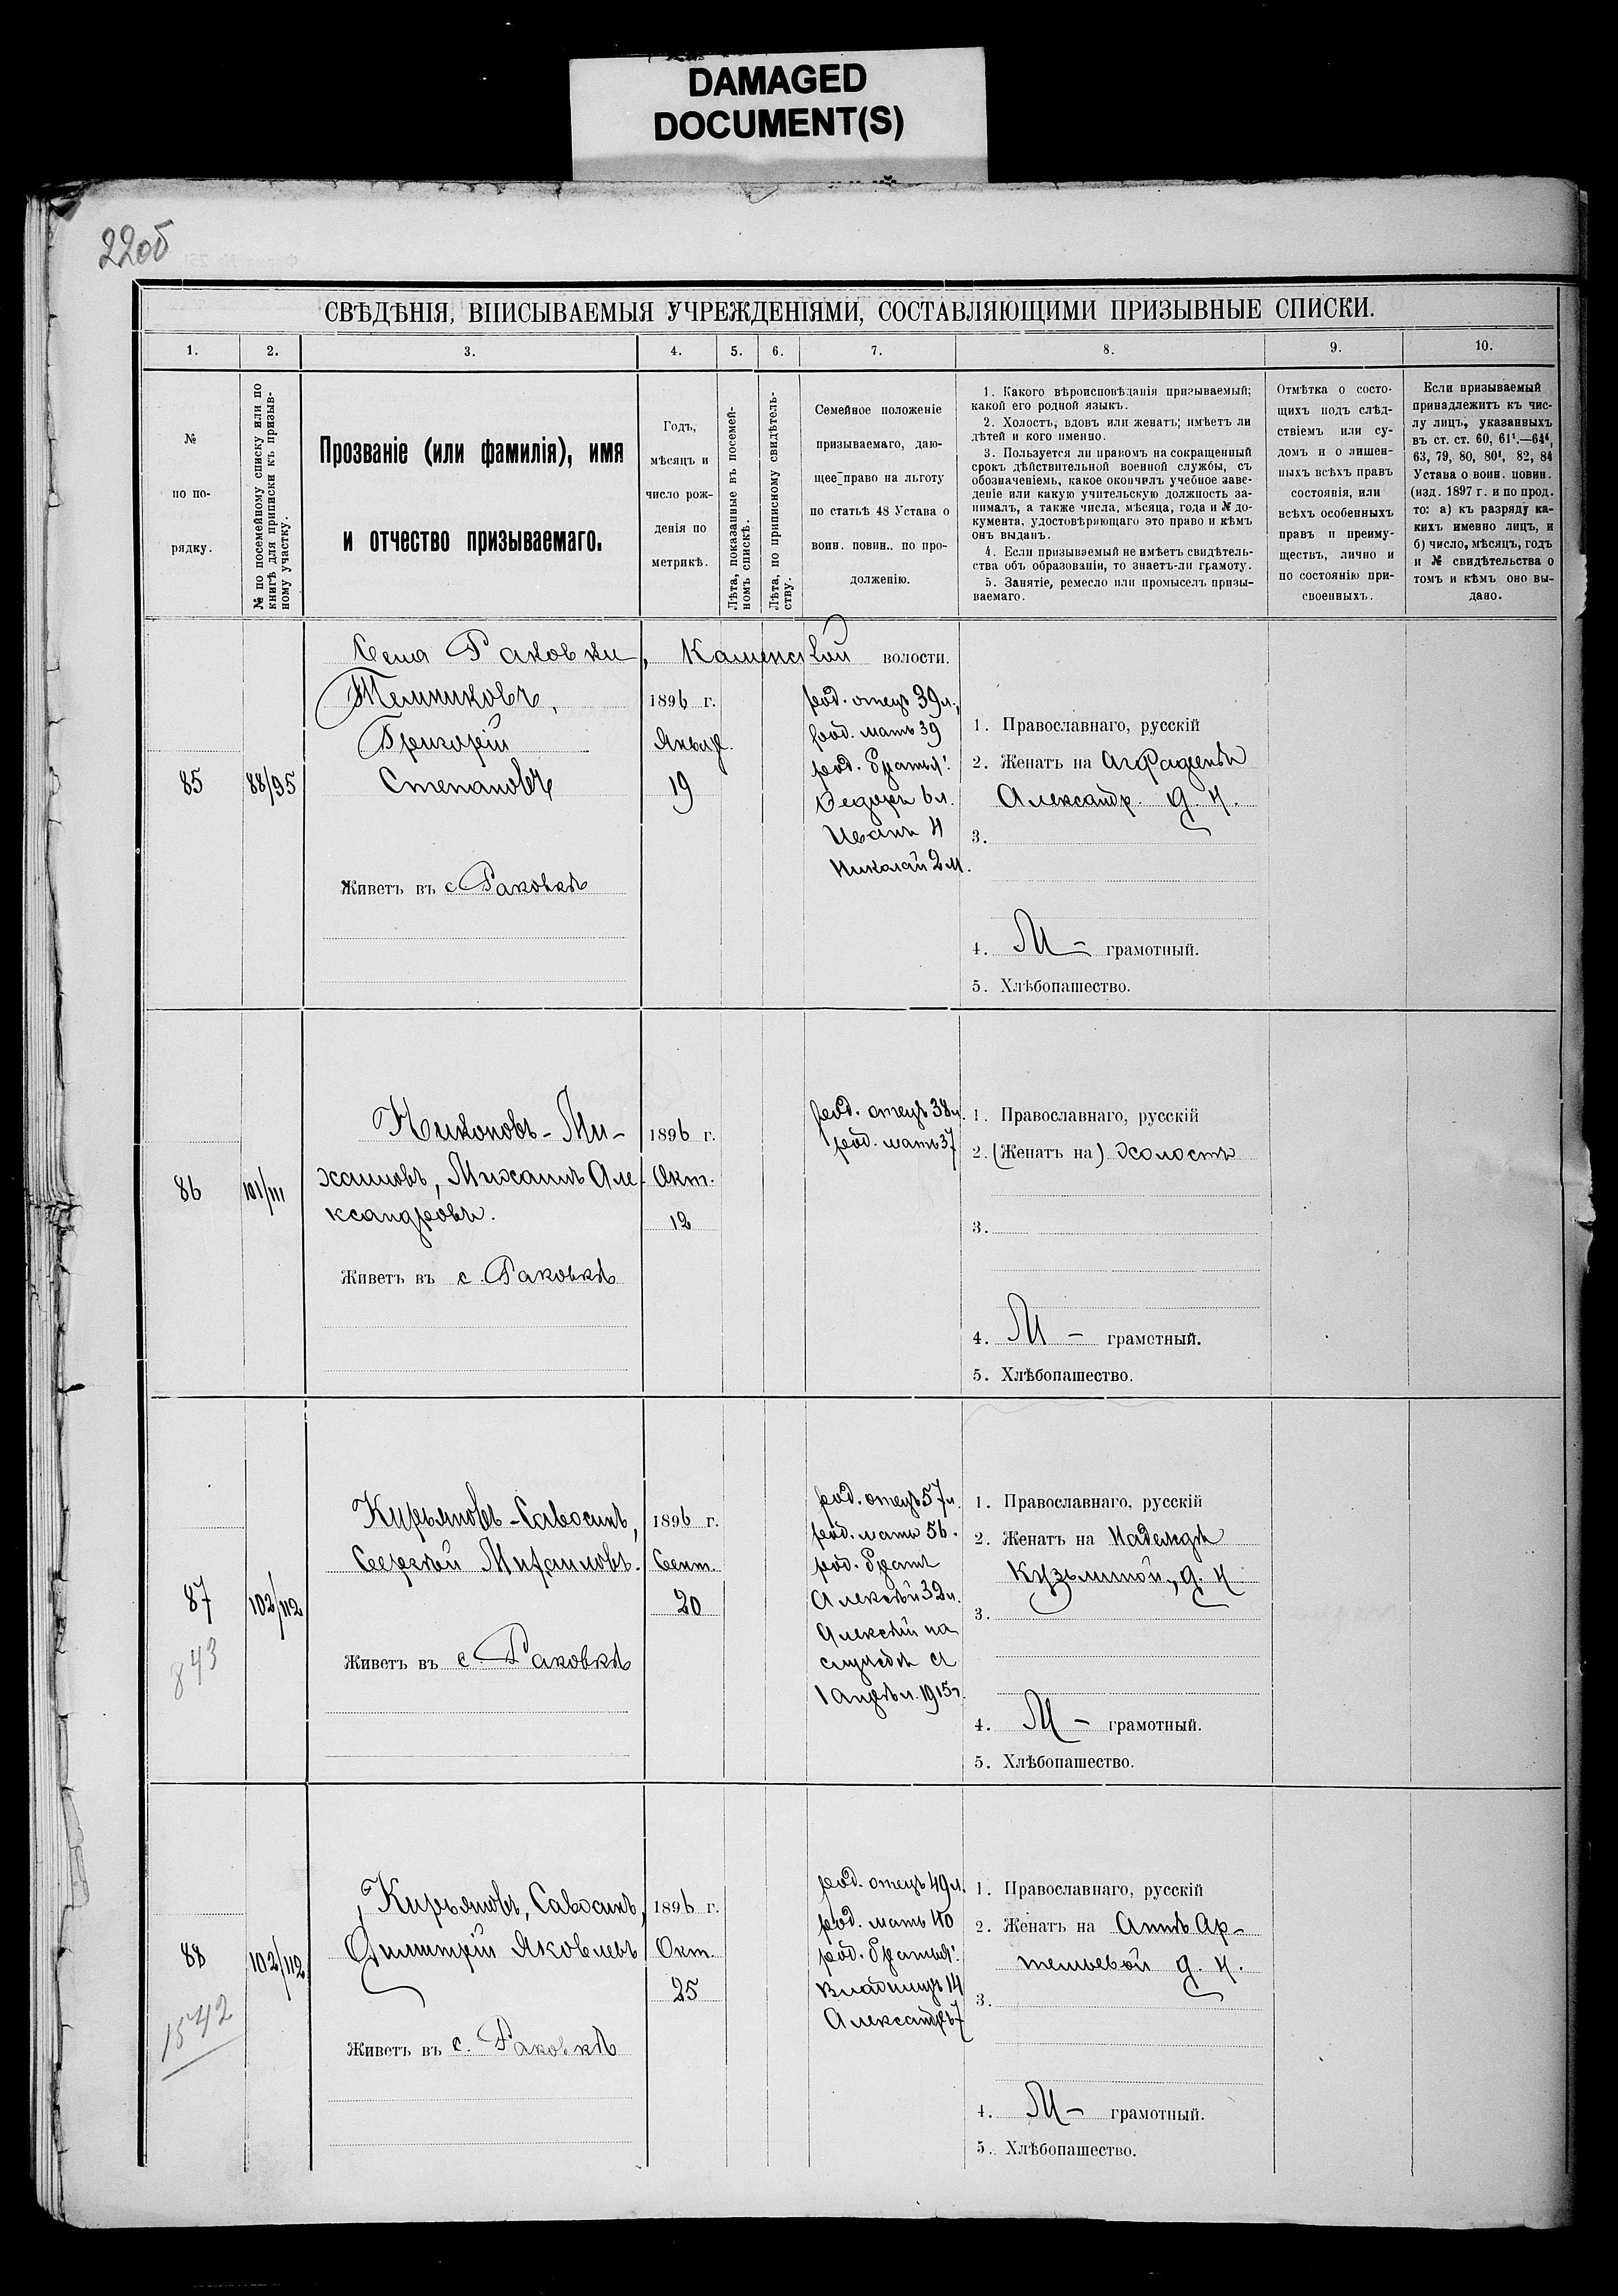 DAMAGED
DOCUMENT(S)
22об
СВѢДѢНІЯ, ВПИСЫВАЕМЫЯ УЧРЕЖДЕНІЯМИ, СОСТАВЛЯЮЩИМИ ПРИЗЫВНЫЕ СПИСКИ.
1. 2. 3. 4. 5. 6. 7. 8. 9. 10.
№
по по-
рядку.
№ по посемейному списку или по
книгѣ для приписки къ призыв-
ному участку.
Прозваніе (или фамилія), имя
и отчество призываемаго.
Годъ,
мѣсяцъ и
число рож-
денія по
метрикѣ.
Лѣта, показанные въ посемей-
номъ спискѣ.
Лѣта, по приписному свидѣтель-
ству.
Семейное положеніе
призываемаго, даю-
щее право на льготу
по статьѣ 48 Устава о
воин. повин.. по про-
долженію.
1. Какого вѣроисповѣданія призываемый;
какой его родной языкъ.
2. Холостъ, вдовъ или женатъ; имѣетъ ли
дѣтей и кого именно.
3. Пользуется ли правомъ на сокращенный
срокъ дѣйствительной военной службы, съ
обозначеніемъ, какое окончилъ учебное заве-
деніе или какую учительскую должность за-
нималъ, а также числа, мѣсяца, года и № до-
кумента, удостовѣряющаго это право и кѣмъ
онъ выданъ.
4. Если призываемый не имѣетъ свидѣтель-
ства объ образованіи, то знаетъ-ли грамоту.
5. Занятіе, ремесло или промыселъ призы-
ваемаго.
Отмѣтка о состо-
щихъ подъ слѣд-
ствіемъ или су-
домъ и о лишен-
ныхъ всѣхъ правъ
состоянія, или
всѣхъ особенныхъ
правъ и преиму-
ществъ, лично и
по состоянію при-
своенныхъ.
Если призываемый
принадлежитъ къ чис-
лу лицъ, указанныхъ
въ ст. ст. 60, 61¹.—64⁴,
63, 79, 80, 80¹, 82, 84
Устава о воин. повин.
(изд. 1897 г. и по прод.
то: а) къ разряду ка-
кихъ именно лицъ, и
б) число, мѣсяцъ, годъ
и № свидѣтельства о
томъ и кѣмъ оно вы-
дано.
Села Раковки, Каменской волости.
85
88/95
Григорій
Степановъ
Живетъ въ с Раковкѣ
1896 г.
Январ.
19
род. отецъ 39 л.,
род. мать 39
род. братья:
Федоръ 6 л.
Иванъ 4
Николай 2 м.
1. Православнаго, русскій
2. Женатъ на Аграфенѣ
Александр. д. н.
3.
4. М – грамотный.
5. Хлѣбопашество.
86
101/111
Никоновъ-Ми-
хаиловъ, Михаилъ Але-
ксандровъ.
Живетъ въ с. Раковкѣ
1896 г.
Окт.
12
род. отецъ 38 л.
род. мать 37
1. Православнаго, русскій
2. (Женатъ на) Холостъ
3.
4. М – грамотный.
5. Хлѣбопашество.
87
843
102/112
Кирьяновъ-Савосинъ,
Сергѣй Михаиловъ.
Живетъ въ с Раковкѣ
1896 г.
Сент.
20
род. отецъ 57 л.
род. мать 56.
род. братъ
Алексѣй 32 л.
Алексѣй на
службѣ съ
1 Апрѣл. 1915 г.
1. Православнаго, русскій
2. Женатъ на Надеждѣ
Кузьминой, д. н
3.
4. М – грамотный.
5. Хлѣбопашество.
88
1542
102/112
Кирьяновъ, Савосинъ,
Димитрій Яковлевъ
Живетъ въ с. Раковкѣ
1896 г.
Окт.
25
род. отецъ 49 л.
род. мать 40
род. братья:
Владимиръ 14
Александръ 7
1. Православнаго, русскій
2. Женатъ на Аннѣ Ар-
темьевой д. н.
3.
4. М – грамотный.
5. Хлѣбопашество.